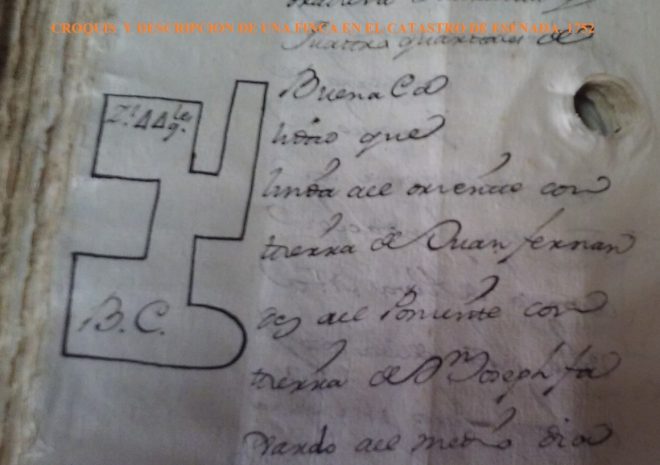 CROQUIS Y DESCRIPCION DE UNA FINCA EN EL CATASTRO DE ESENADA. 1752
quartales de
Buena Ca
lidad que
linda al oriente con
tierra de Juan fernan
dez al Poniente con
tierra de Dn Joseph fa
xardo al medio dia
B.C.